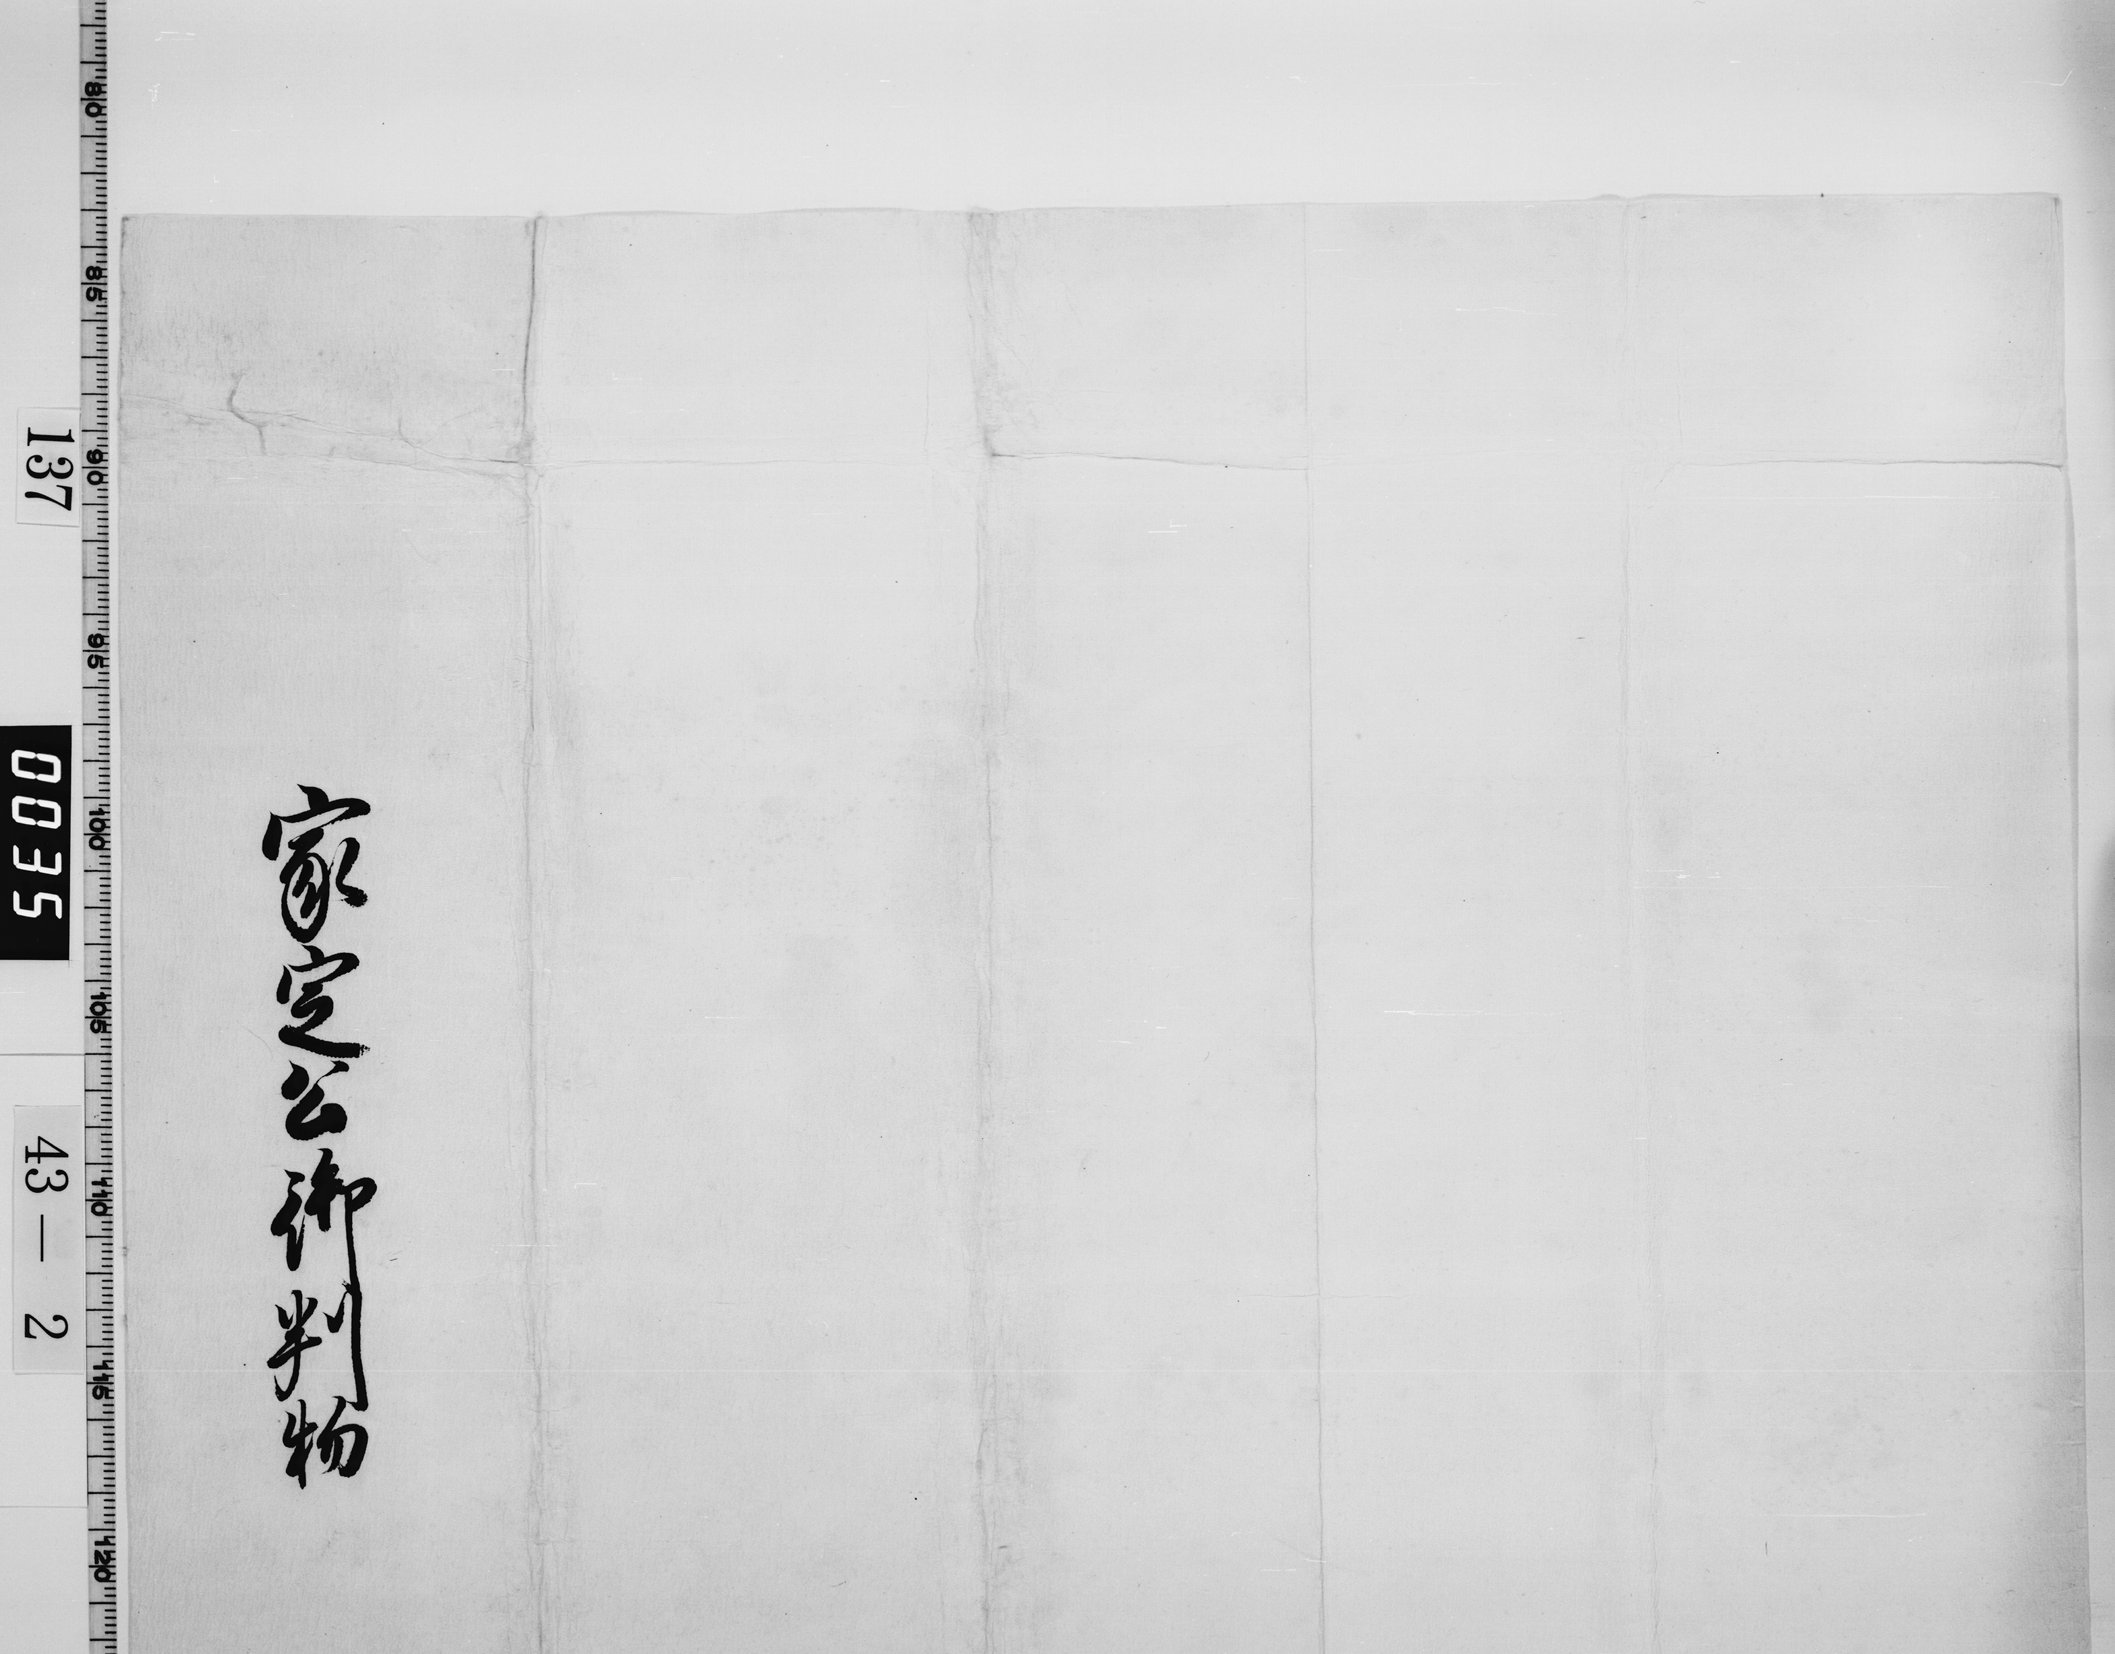 家定公御判物
137
0035
43－2
80
85
90
95
100
105
110
115
120